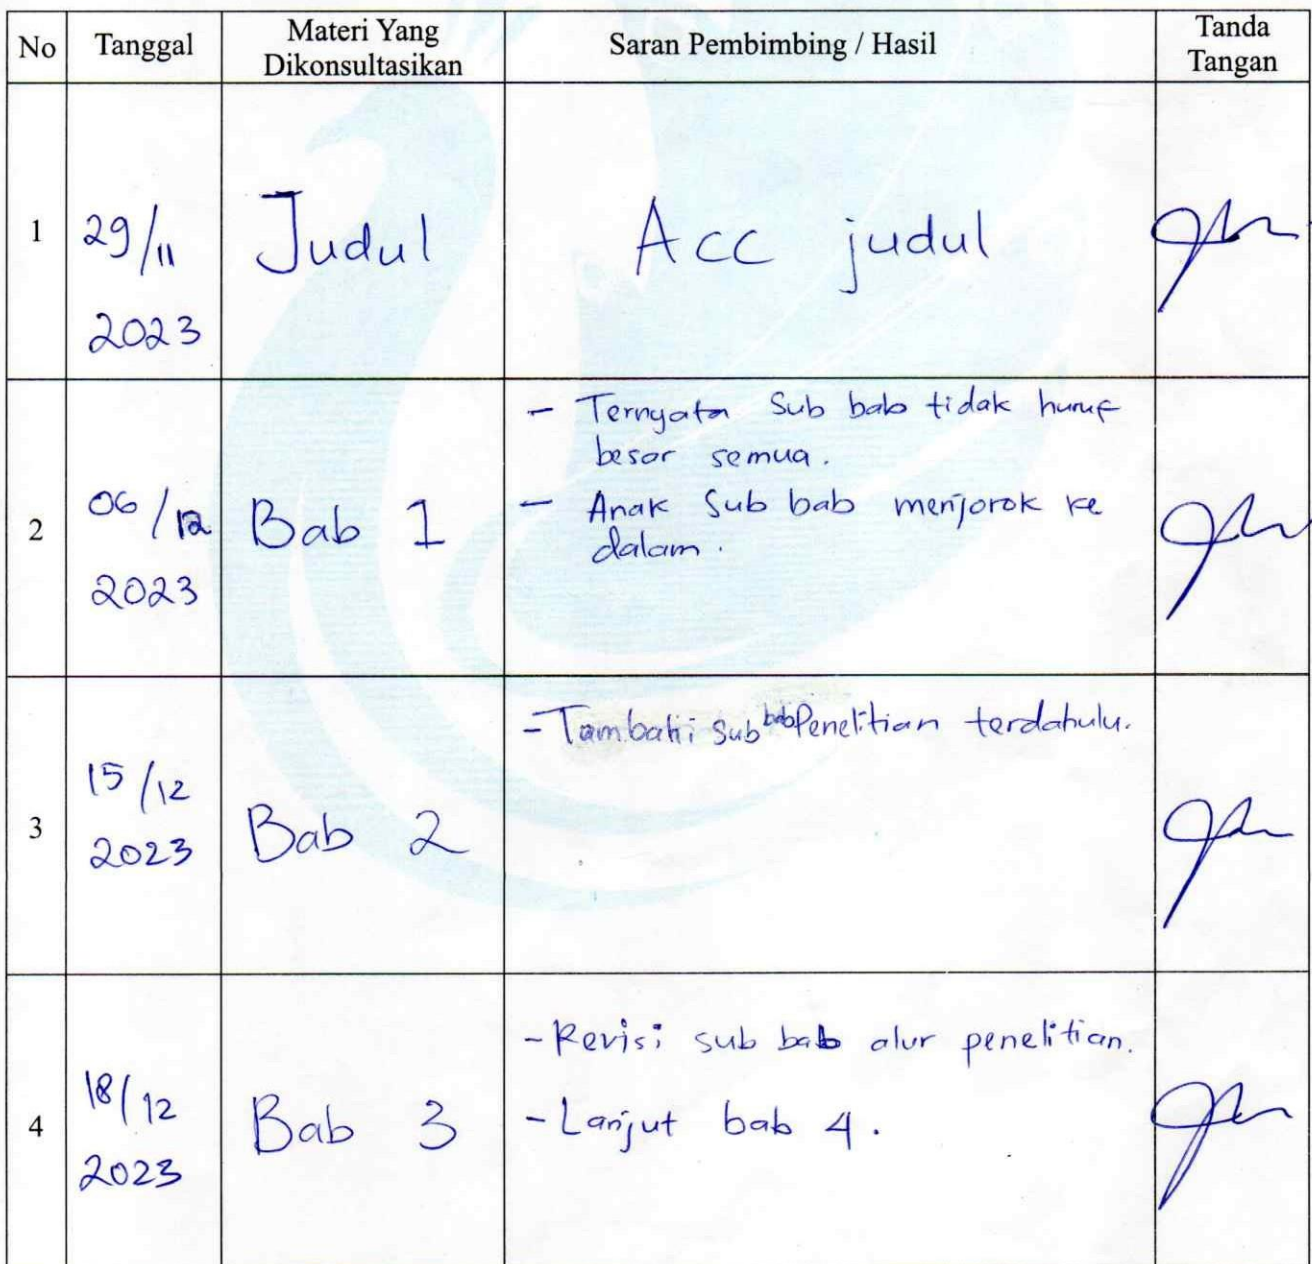 No Tanggal Materi Yang Dikonsultasikan Saran Pembimbing / Hasil Tanda Tangan
1 29/11 2023 Judul Acc judul
2 06/12 2023 Bab 1
- Ternyata Sub bab tidak huruf
besar semua.
- Anak Sub bab menjorok ke
dalam.
3 15/12 2023 Bab 2
- Tambahi sub bab Penelitian terdahulu.
4 18/12 2023 Bab 3
- Revisi sub bab alur penelitian.
- Lanjut bab 4.